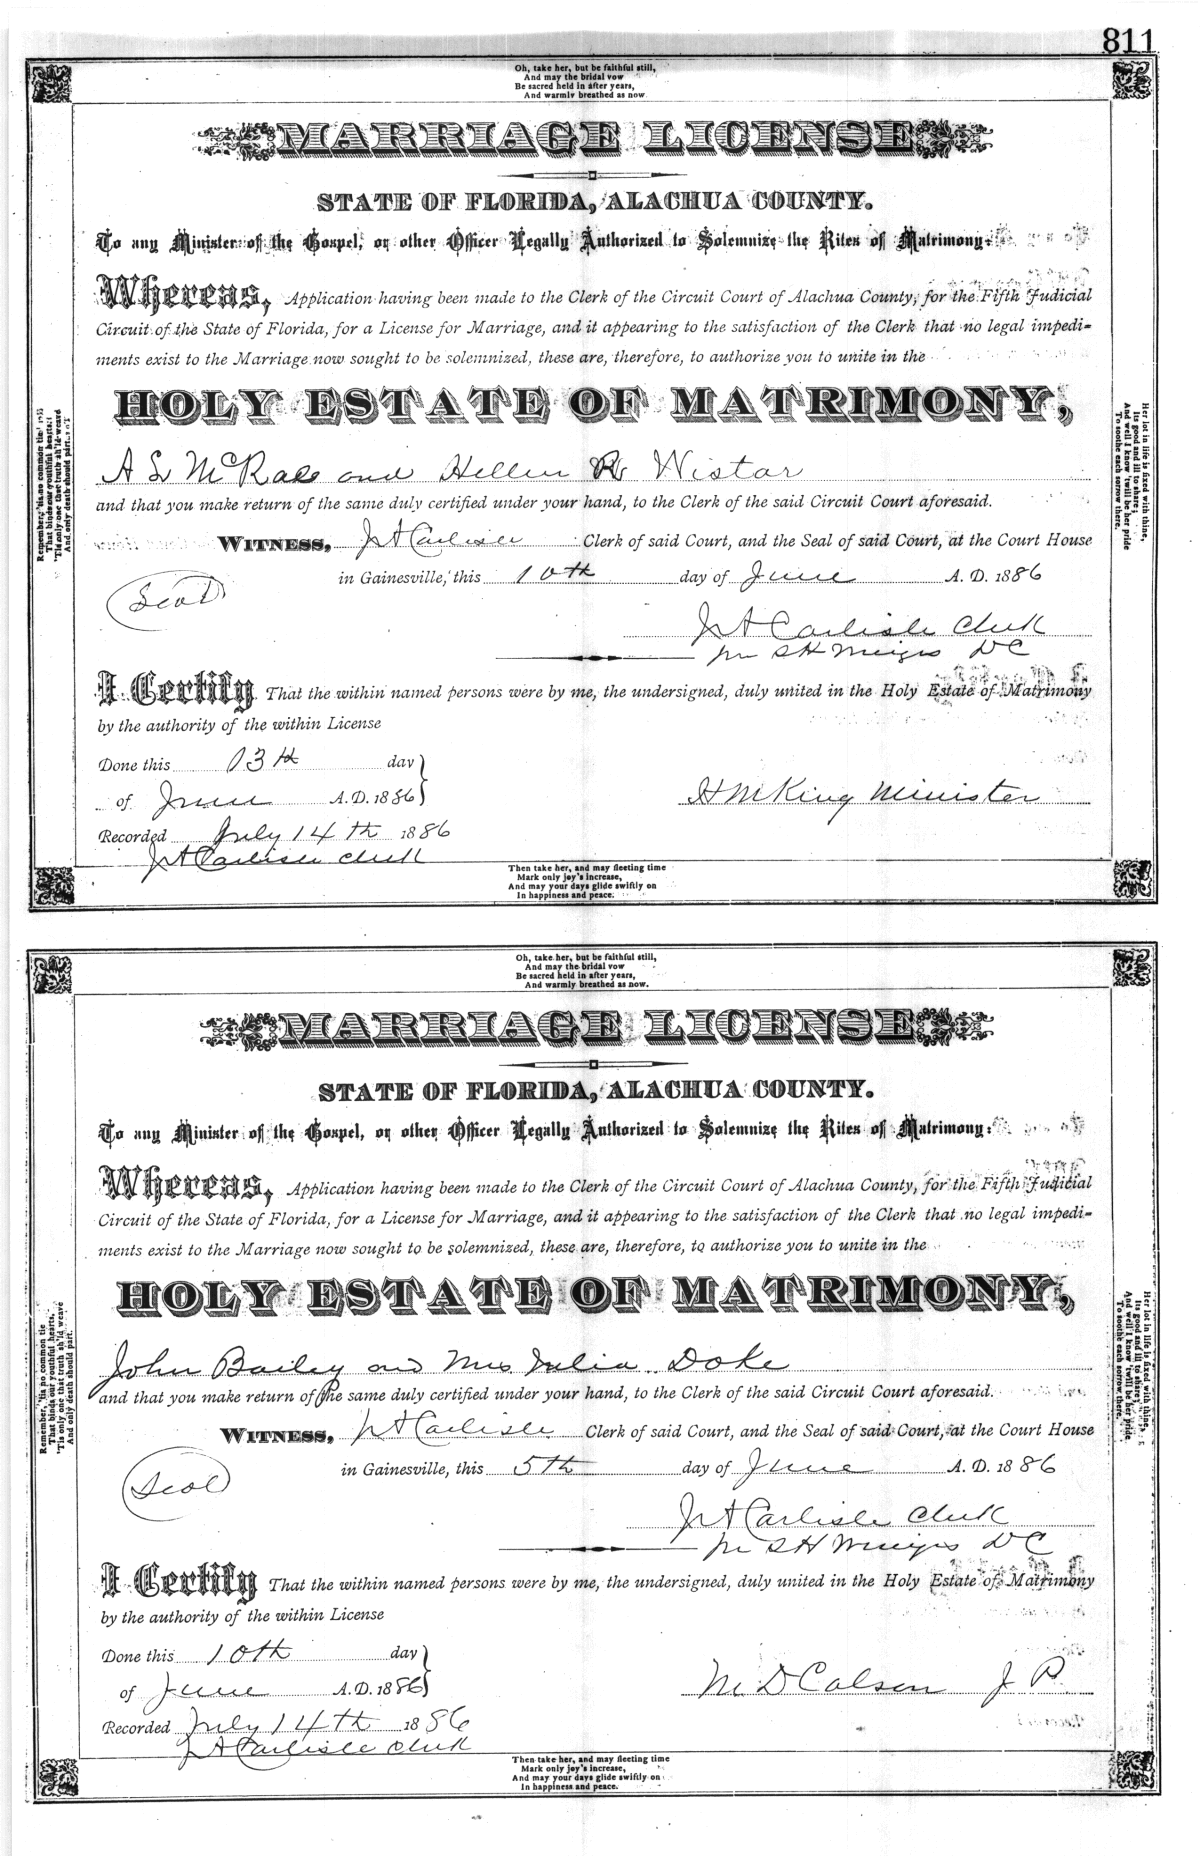 811
Oh, take her, but be faithful still,
And may the bridal vow
Be sacred held in after years,
And warmly breathed as now.
MARRIAGE LICENSE
STATE OF FLORIDA, ALACHUA COUNTY.
To any Minister of the Gospel, or other Officer Legally Authorized to Solemnize the Rites of Matrimony:
Whereas, Application having been made to the Clerk of the Circuit Court of Alachua County, for the Fifth Judicial
Circuit of the State of Florida, for a License for Marriage, and it appearing to the satisfaction of the Clerk that no legal impedi-
ments exist to the Marriage now sought to be solemnized, these are, therefore, to authorize you to unite in the
HOLY ESTATE OF MATRIMONY,
A L McRae and Hellen R Wistar
and that you make return of the same duly certified under your hand, to the Clerk of the said Circuit Court aforesaid.
WITNESS, J A Carlisle Clerk of said Court, and the Seal of said Court, at the Court House
in Gainesville, this 10th day of June A. D. 1886
Seal
J A Carlisle Clerk
per S H DC
I Certify That the within named persons were by me, the undersigned, duly united in the Holy Estate of Matrimony
by the authority of the within License
Done this 13th day
of June A. D. 1886
H M King Minister
Recorded July 14th 1886
J A Carlisle Clerk
Then take her, and may fleeting time
Mark only joy's increase,
And may your days glide swiftly on
In happiness and peace.
Remember, 'tis no common tie
That binds our youthful hearts;
'Tis only one that truth sh'ld weave
And only death should part.
Her lot in life is fixed with thine,
Its good and ill to share;
And well I know 'twill be her pride
To soothe each sorrow there.
Oh, take her, but be faithful still,
And may the bridal vow
Be sacred held in after years,
And warmly breathed as now.
MARRIAGE LICENSE
STATE OF FLORIDA, ALACHUA COUNTY.
To any Minister of the Gospel, or other Officer Legally Authorized to Solemnize the Rites of Matrimony:
Whereas, Application having been made to the Clerk of the Circuit Court of Alachua County, for the Fifth Judicial
Circuit of the State of Florida, for a License for Marriage, and it appearing to the satisfaction of the Clerk that no legal impedi-
ments exist to the Marriage now sought to be solemnized, these are, therefore, to authorize you to unite in the
HOLY ESTATE OF MATRIMONY,
John Bailey and Mrs Julia Doke
and that you make return of the same duly certified under your hand, to the Clerk of the said Circuit Court aforesaid.
WITNESS, J A Carlisle Clerk of said Court, and the Seal of said Court, at the Court House
in Gainesville, this 5th day of June A. D. 1886
Seal
J A Carlisle Clerk
per S H DC
I Certify That the within named persons were by me, the undersigned, duly united in the Holy Estate of Matrimony
by the authority of the within License
Done this 10th day
of June A. D. 1886
M D Colson J P
Recorded July 14th 1886
J A Carlisle Clerk
Then take her, and may fleeting time
Mark only joy's increase,
And may your days glide swiftly on
In happiness and peace.
Remember, 'tis no common tie
That binds our youthful hearts,
'Tis only one that truth sh'ld weave
And only death should part.
Her lot in life is fixed with thine,
Its good and ill to share;
And well I know 'twill be her pride
To soothe each sorrow there.